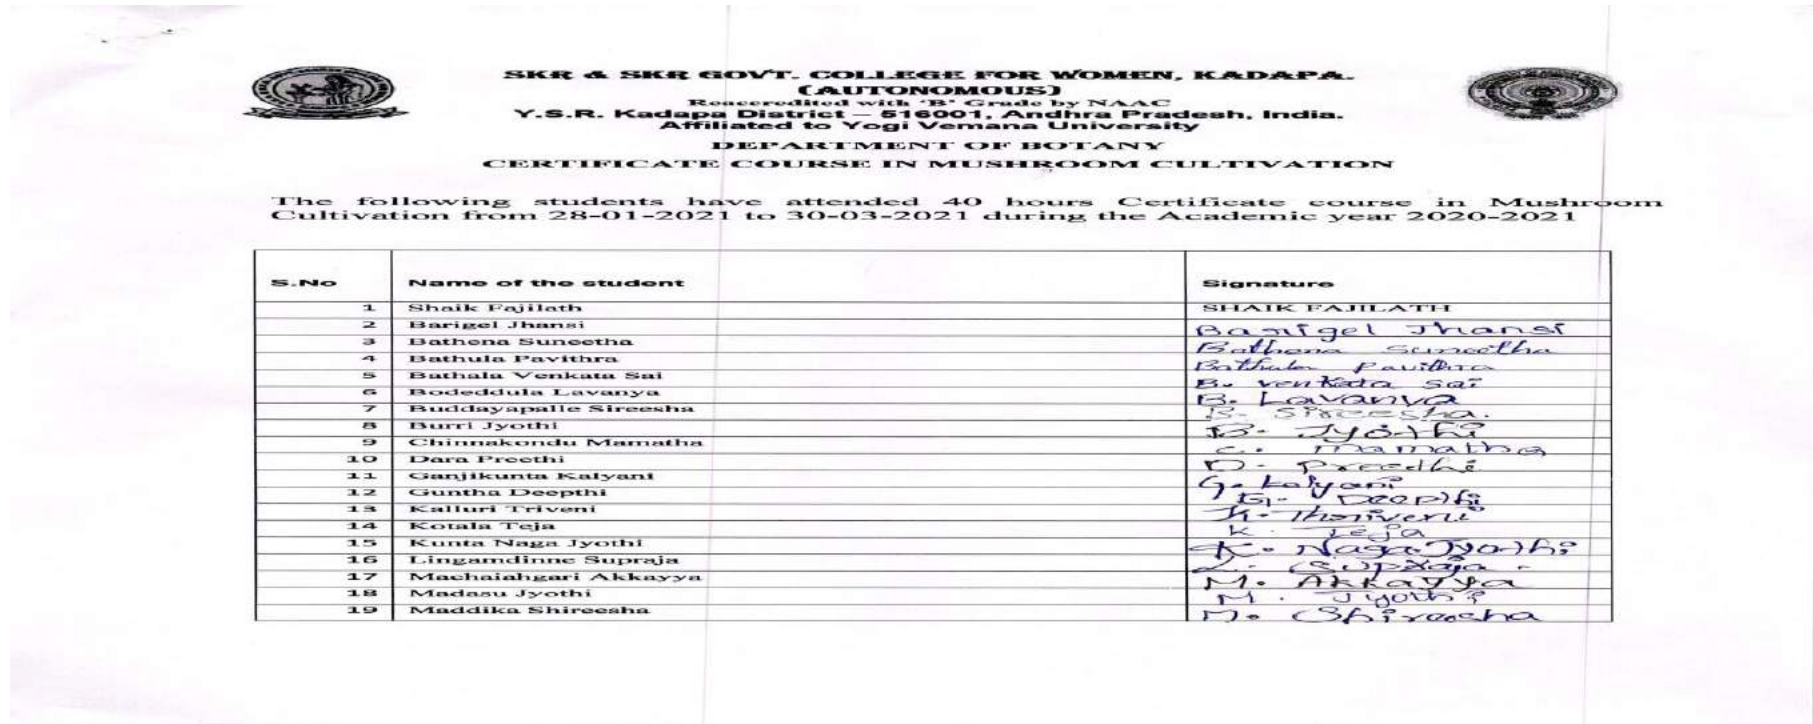 SKR & SKR GOVT. COLLEGE FOR WOMEN, KADAPA.
(AUTONOMOUS)
Reaccredited with 'B' Grade by NAAC
Y.S.R. Kadapa District – 516001, Andhra Pradesh, India.
Affiliated to Yogi Vemana University
DEPARTMENT OF BOTANY
CERTIFICATE COURSE IN MUSHROOM CULTIVATION
The following students have attended 40 hours Certificate course in Mushroom
Cultivation from 28-01-2021 to 30-03-2021 during the Academic year 2020-2021
S.No Name of the student Signature
1 Shaik Fajilath SHAIK FAJILATH
2 Barigel Jhansi Barigel Jhansi
3 Bathena Suneetha Bathena Suneetha
4 Bathula Pavithra Bathula Pavithra
5 Bathala Venkata Sai B. venkata sai
6 Bodeddula Lavanya B. Lavanya
7 Buddayapalle Sireesha B. Sireesha.
8 Burri Jyothi B. Jyothi
9 Chinnakondu Mamatha C. Mamatha
10 Dara Preethi D. Preedhi
11 Ganjikunta Kalyani G. Kalyani
12 Guntha Deepthi G. Deepthi
13 Kalluri Triveni K. Thriveni
14 Kotala Teja K. Teja
15 Kunta Naga Jyothi K. Naga Jyothi
16 Lingamdinne Supraja L. Supraja.
17 Machaiahgari Akkayya M. Akkayya
18 Madasu Jyothi M. Jyothi
19 Maddika Shireesha M. Shireesha